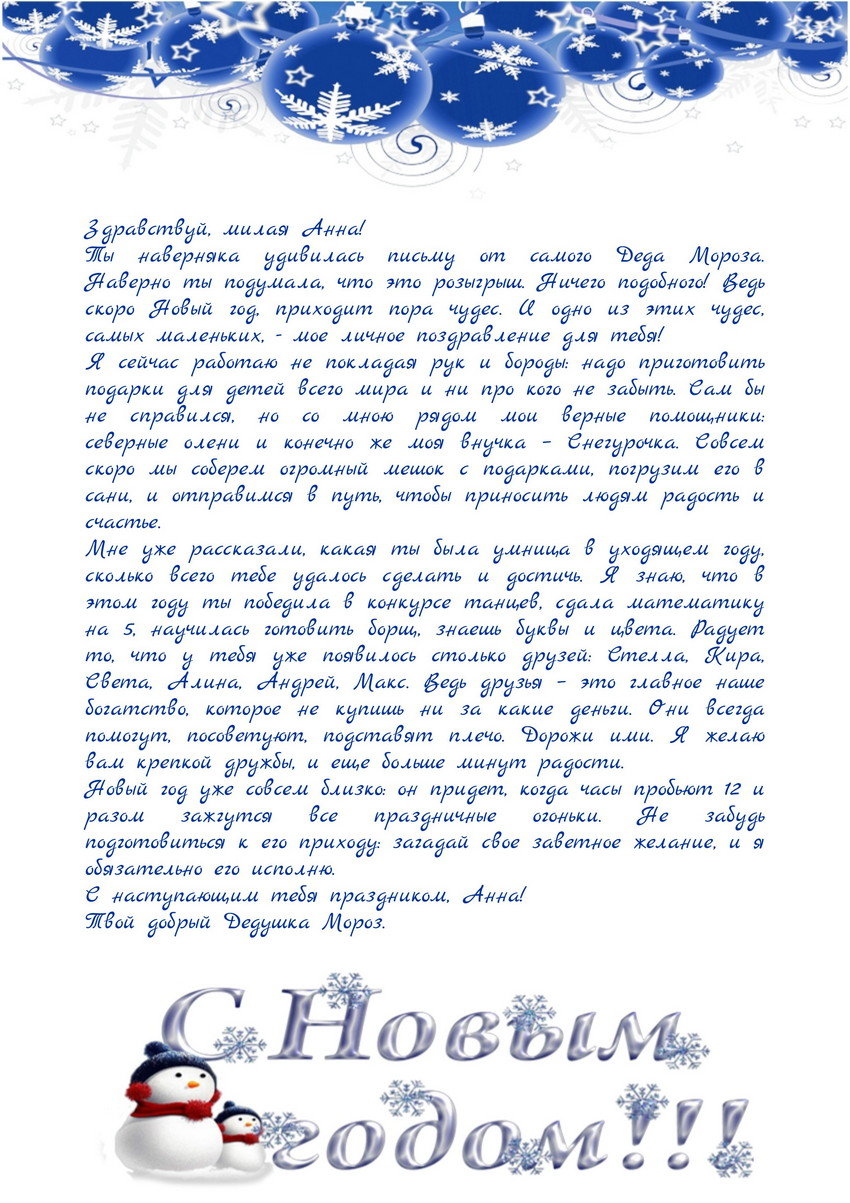 Здравствуй, милая Анна!
Ты наверняка удивилась письму от самого Деда Мороза.
Наверно ты подумала, что это розыгрыш. Ничего подобного! Ведь
скоро Новый год, приходит пора чудес. И одно из этих чудес,
самых маленьких, - мое личное поздравление для тебя!
Я сейчас работаю не покладая рук и бороды: надо приготовить
подарки для детей всего мира и ни про кого не забыть. Сам бы
не справился, но со мною рядом мои верные помощники:
северные олени и конечно же моя внучка – Снегурочка. Совсем
скоро мы соберем огромный мешок с подарками, погрузим его в
сани, и отправимся в путь, чтобы приносить людям радость и
счастье.
Мне уже рассказали, какая ты была умница в уходящем году,
сколько всего тебе удалось сделать и достичь. Я знаю, что в
этом году ты победила в конкурсе танцев, сдала математику
на 5, научилась готовить борщ, знаешь буквы и цвета. Радует
то, что у тебя уже появилось столько друзей: Стелла, Кира,
Света, Алина, Андрей, Макс. Ведь друзья – это главное наше
богатство, которое не купишь ни за какие деньги. Они всегда
помогут, посоветуют, подставят плечо. Дорожи ими. Я желаю
вам крепкой дружбы, и еще больше минут радости.
Новый год уже совсем близко: он придет, когда часы пробьют 12 и
разом зажгутся все праздничные огоньки. Не забудь
подготовиться к его приходу: загадай свое заветное желание, и я
обязательно его исполню.
С наступающим тебя праздником, Анна!
Твой добрый Дедушка Мороз.
С Новым
годом!!!